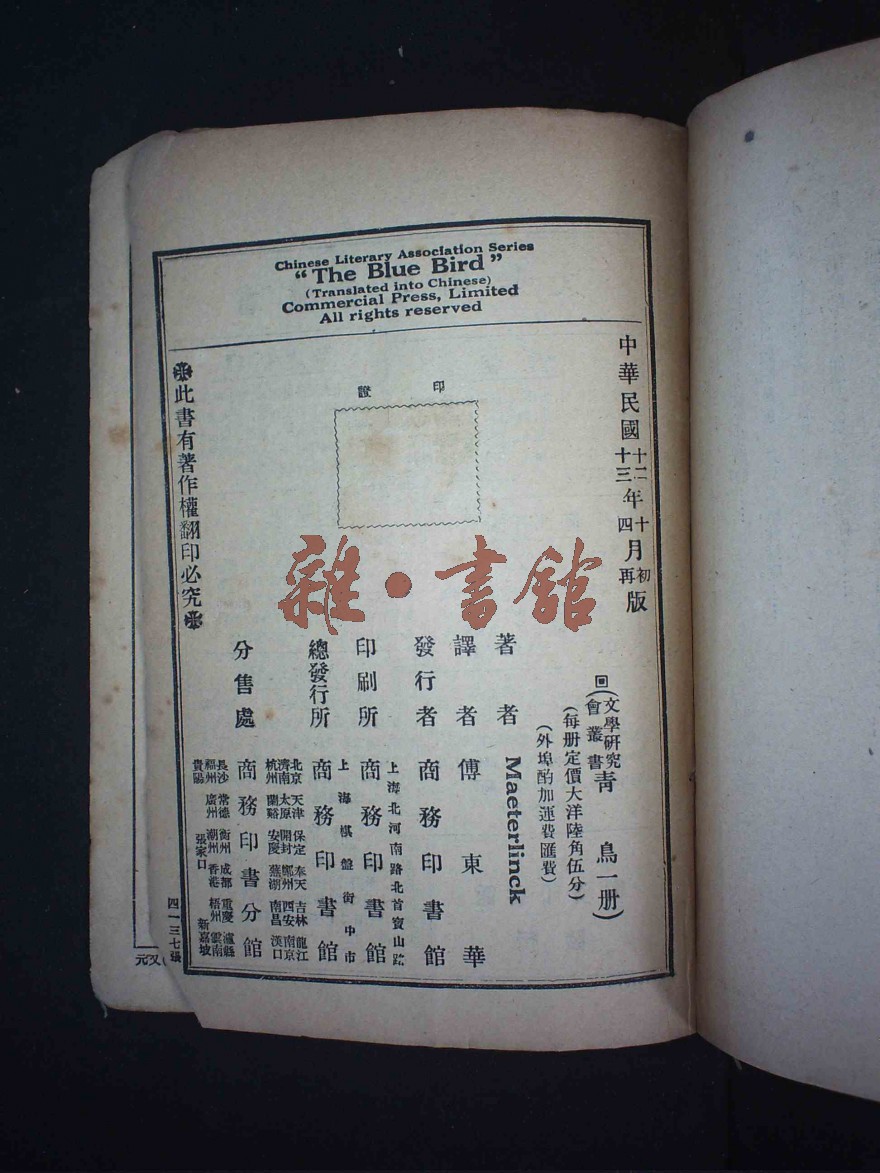 Chinese Literary Association Series
“The Blue Bird”
(Translated into Chinese)
Commercial Press, Limited
All rights reserved
中華民國十二年十月初版
十三年四月再版
印證
回(文學研究會叢書青鳥一册)
(每册定價大洋陸角伍分)
(外埠酌加運費匯費)
著者 Maeterlinck
譯者 傅東華
發行者 商務印書館
上海北河南路北首寶山路
印刷所 商務印書館
上海棋盤街中市
總發行所 商務印書館
北京 天津 保定 奉天 吉林 龍江
濟南 太原 開封 鄭州 西安 南京
杭州 蘭谿 安慶 蕪湖 南昌 漢口
分售處 商務印書分館
長沙 常德 衡州 成都 重慶 瀘縣
福州 廣州 潮州 香港 梧州 雲南
貴陽 張家口 新嘉坡
此書有著作權翻印必究
四一三七張
雜·書館